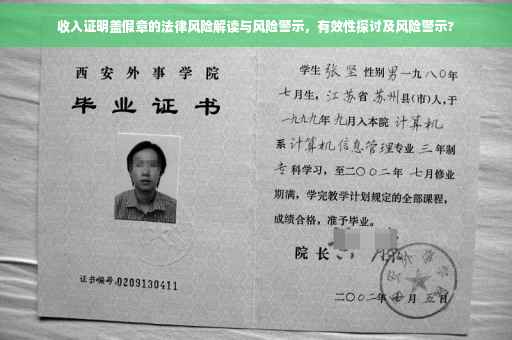 收入证明盖假章的法律风险解读与风险警示，有效性探讨及风险警示?
西安外事学院
毕业证书
证书编号:0209130411
学生 张坚 性别 男 一九八〇年
七月生，江苏省 苏州县(市)人，于
一九九九年 九月入本院 计算机
系 计算机信息管理专业 三 年制
专 科学习，至二〇〇二年 七月修业
期满，学完教学计划规定的全部课程，
成绩合格，准予毕业。
院长
二〇〇二年 月 五 日